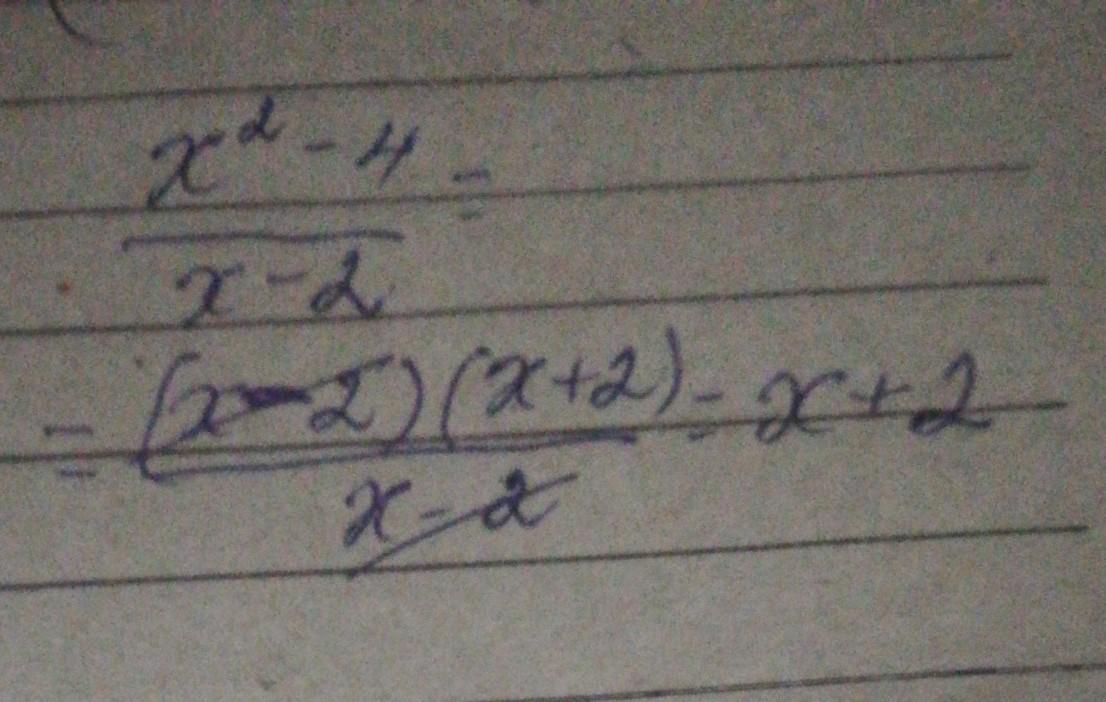 x² - 4 =
x - 2
= (x - 2)(x + 2) = x + 2
x - 2